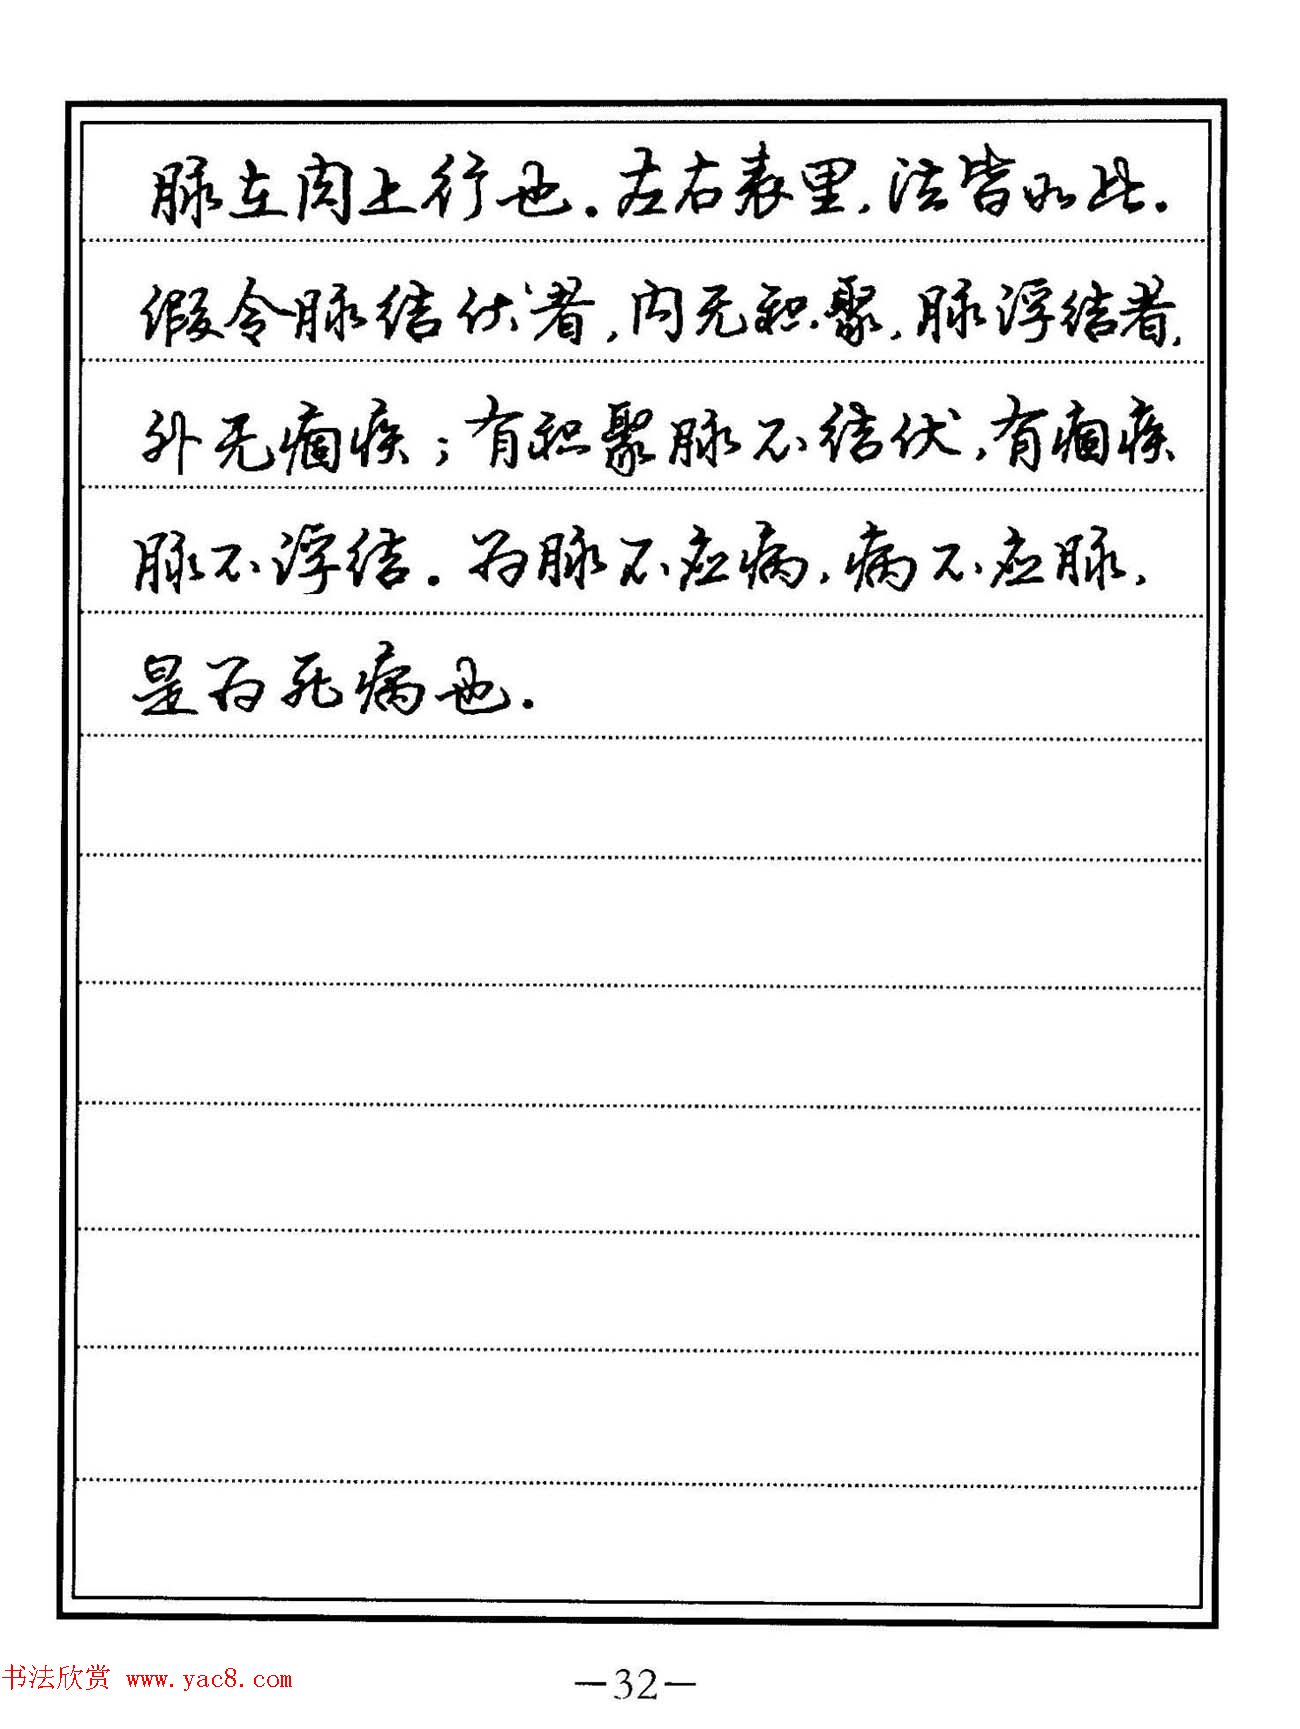 脉在肉上行也.左右表里,法皆如此.
假令脉结伏者,内无积聚,脉浮结者,
外无痼疾;有积聚脉不结伏,有痼疾
脉不浮结.为脉不应病,病不应脉,
是为死病也.
书法欣赏 www.yac8.com
—32—